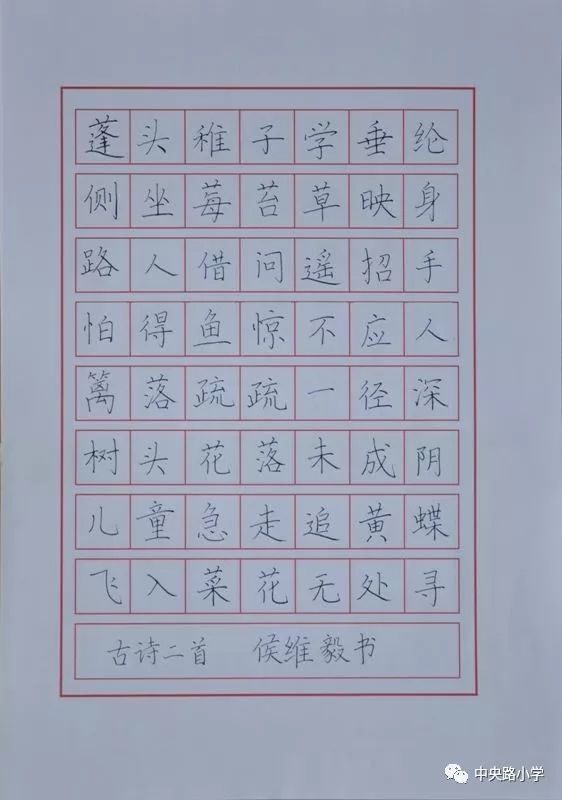 蓬头稚子学垂纶
侧坐莓苔草映身
路人借问遥招手
怕得鱼惊不应人
篱落疏疏一径深
树头花落未成阴
儿童急走追黄蝶
飞入菜花无处寻
古诗二首 侯维毅书
中央路小学